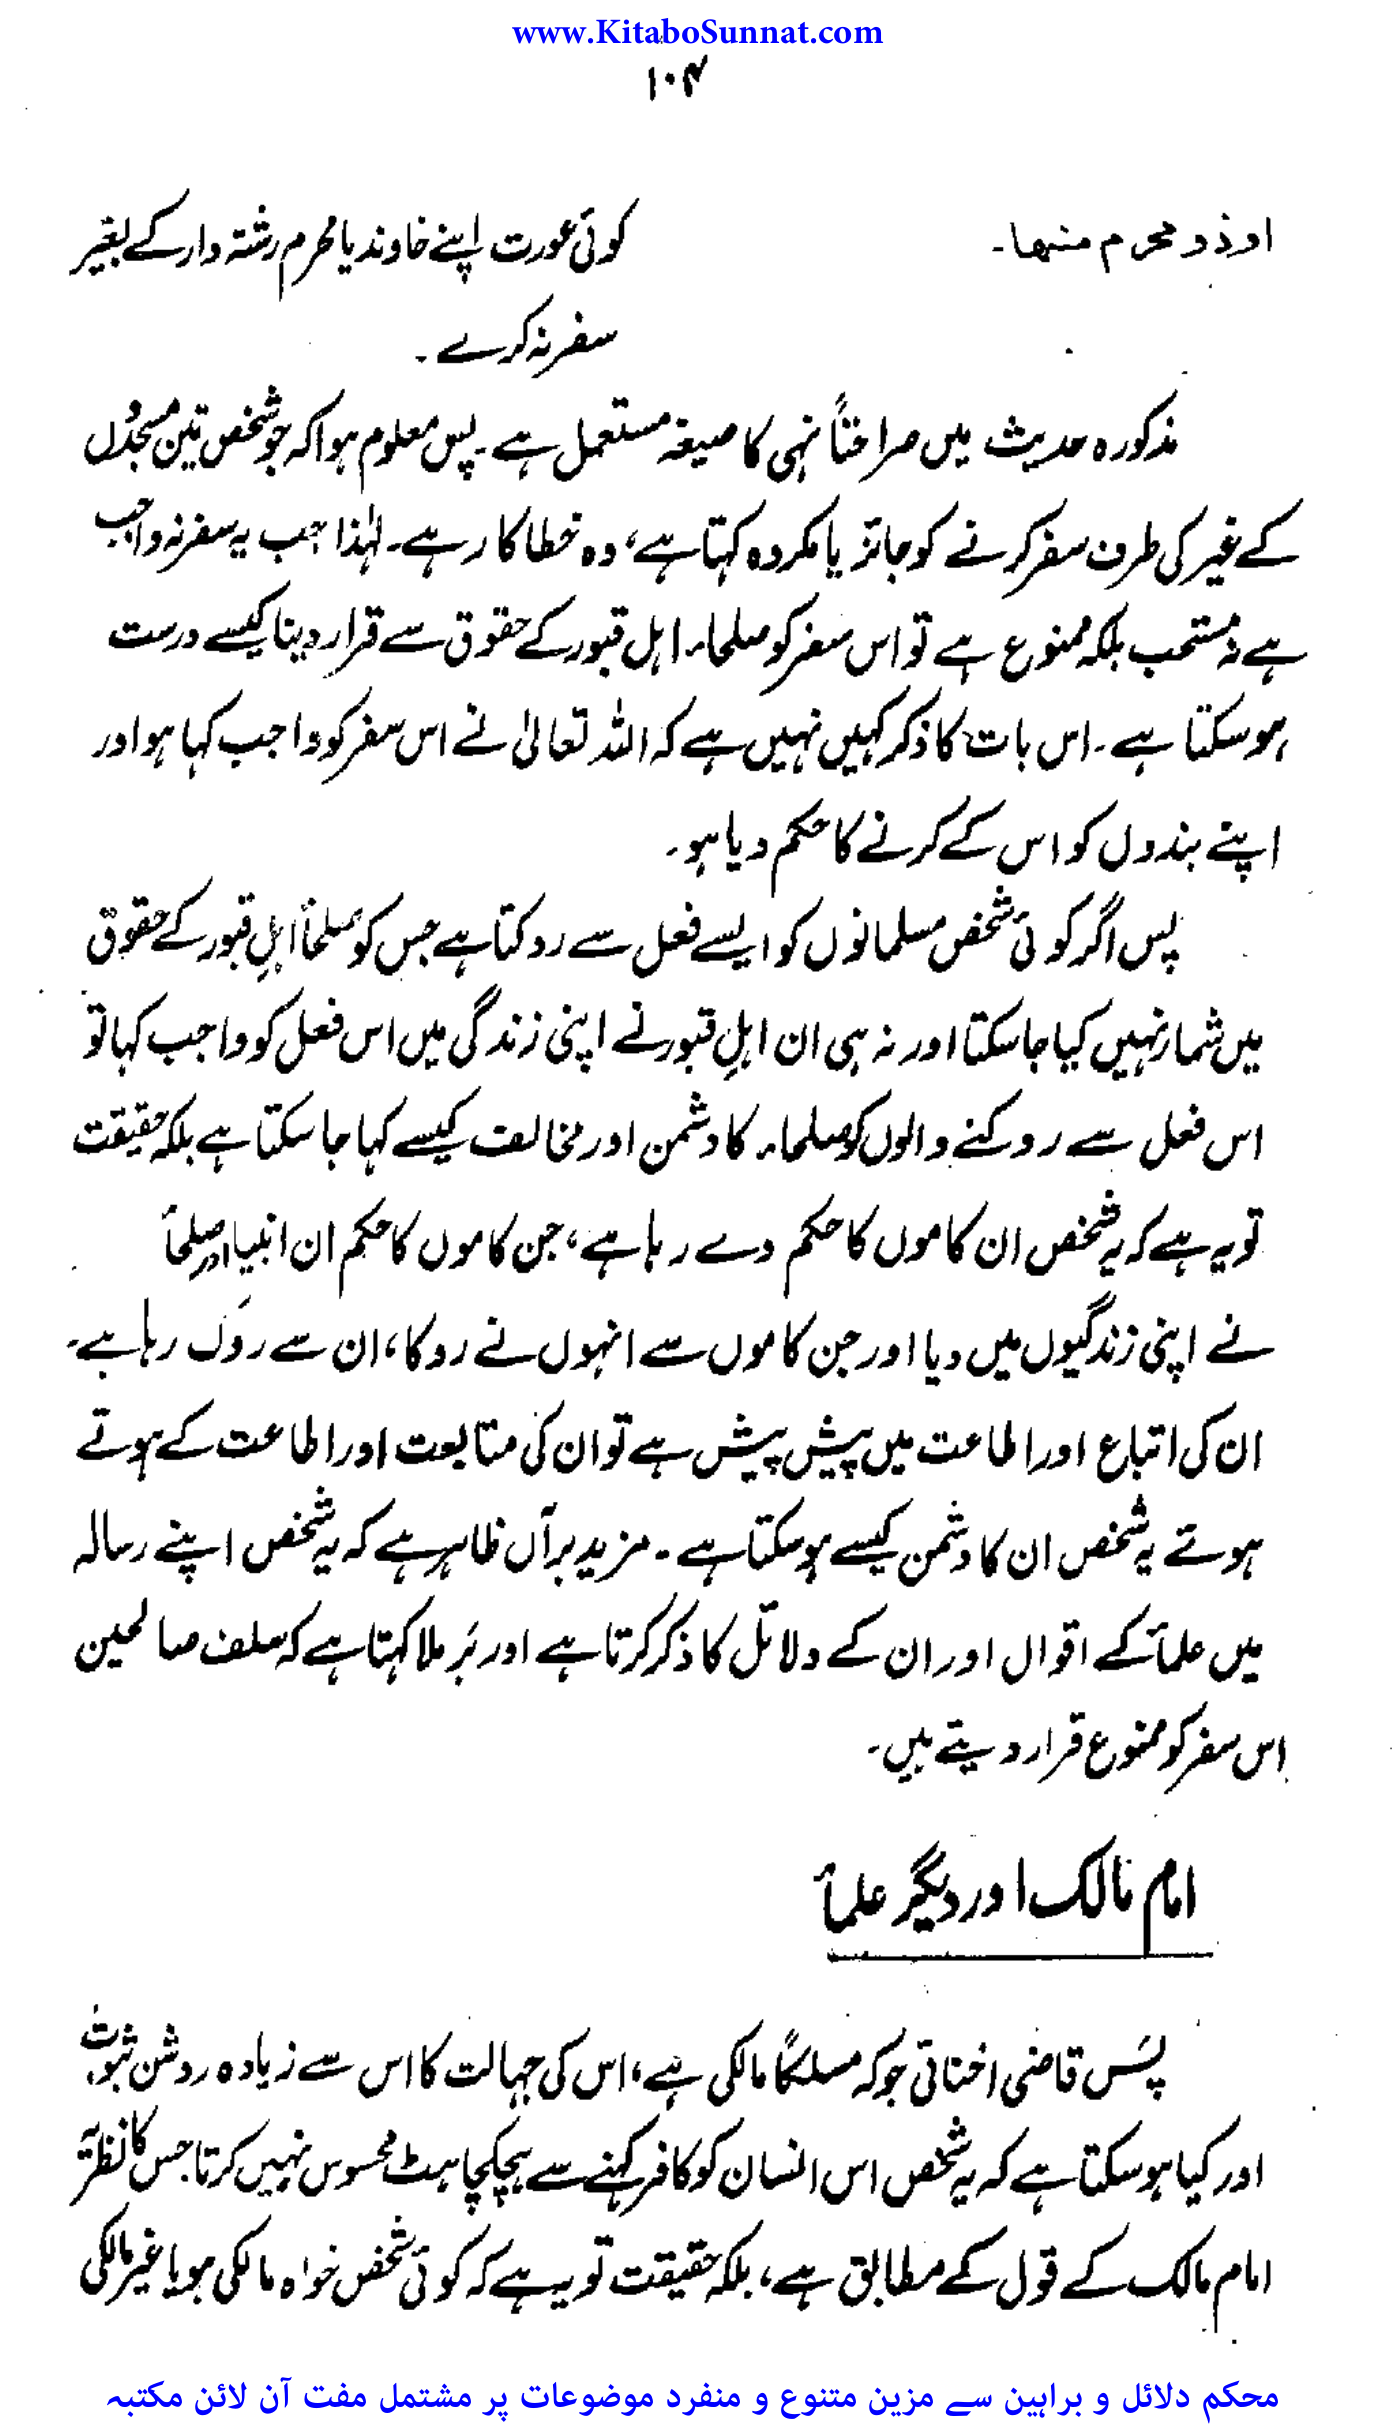 www.KitaboSunnat.com
۱۰۴
او ذو محرم منہا۔
کوئی عورت اپنے خاوند یا محرم رشتہ دار کے بغیر
سفر نہ کرے۔
مذکورہ حدیث میں صراحتاً نہی کا صیغہ مستعمل ہے۔ پس معلوم ہوا کہ جو شخص تین مسجدوں
کے غیر کی طرف سفر کرنے کو جائز یا مکروہ کہتا ہے، وہ خطا کار ہے۔ لہٰذا جب یہ سفر نہ واجب
ہے نہ مستحب بلکہ ممنوع ہے تو اس سفر کو صلحاء اہل قبور کے حقوق سے قرار دینا کیسے درست
ہو سکتا ہے۔ اس بات کا ذکر کہیں نہیں ہے کہ اللہ تعالیٰ نے اس سفر کو واجب کہا ہو اور
اپنے بندوں کو اس کے کرنے کا حکم دیا ہو۔
پس اگر کوئی شخص مسلمانوں کو ایسے فعل سے روکتا ہے جس کو صلحأ اہلِ قبور کے حقوق
میں شمار نہیں کیا جا سکتا اور نہ ہی ان اہلِ قبور نے اپنی زندگی میں اس فعل کو واجب کہا تو
اس فعل سے روکنے والوں کو صلحاء کا دشمن اور مخالف کیسے کہا جا سکتا ہے بلکہ حقیقت
تو یہ ہے کہ یہ شخص ان کاموں کا حکم دے رہا ہے، جن کاموں کا حکم ان انبیا اور صلحأ
نے اپنی زندگیوں میں دیا اور جن کاموں سے انہوں نے روکا، ان سے روک رہا ہے۔
ان کی اتباع اور اطاعت میں پیش پیش ہے تو ان کی متابعت اور اطاعت کے ہوتے
ہوتے یہ شخص ان کا دشمن کیسے ہو سکتا ہے۔ مزید برآں ظاہر ہے کہ یہ شخص اپنے رسالہ
میں علمأ کے اقوال اور ان کے دلائل کا ذکر کرتا ہے اور بَر ملا کہتا ہے کہ سلف صالحین
اس سفر کو ممنوع قرار دیتے ہیں۔
امام مالک اور دیگر علمأ
پَس قاضی اخنائی جو کہ مسلکاً مالکی ہے، اس کی جہالت کا اس سے زیادہ روشن ثبوت
اور کیا ہو سکتا ہے کہ یہ شخص اس انسان کو کافر کہنے سے ہچکچاہٹ محسوس نہیں کرتا جس کا نظریّہ
امام مالک کے قول کے مطابق ہے، بلکہ حقیقت تو یہ ہے کہ کوئی شخص خواہ مالکی ہو یا غیر مالکی
محکم دلائل و براہین سے مزین متنوع و منفرد موضوعات پر مشتمل مفت آن لائن مکتبہ